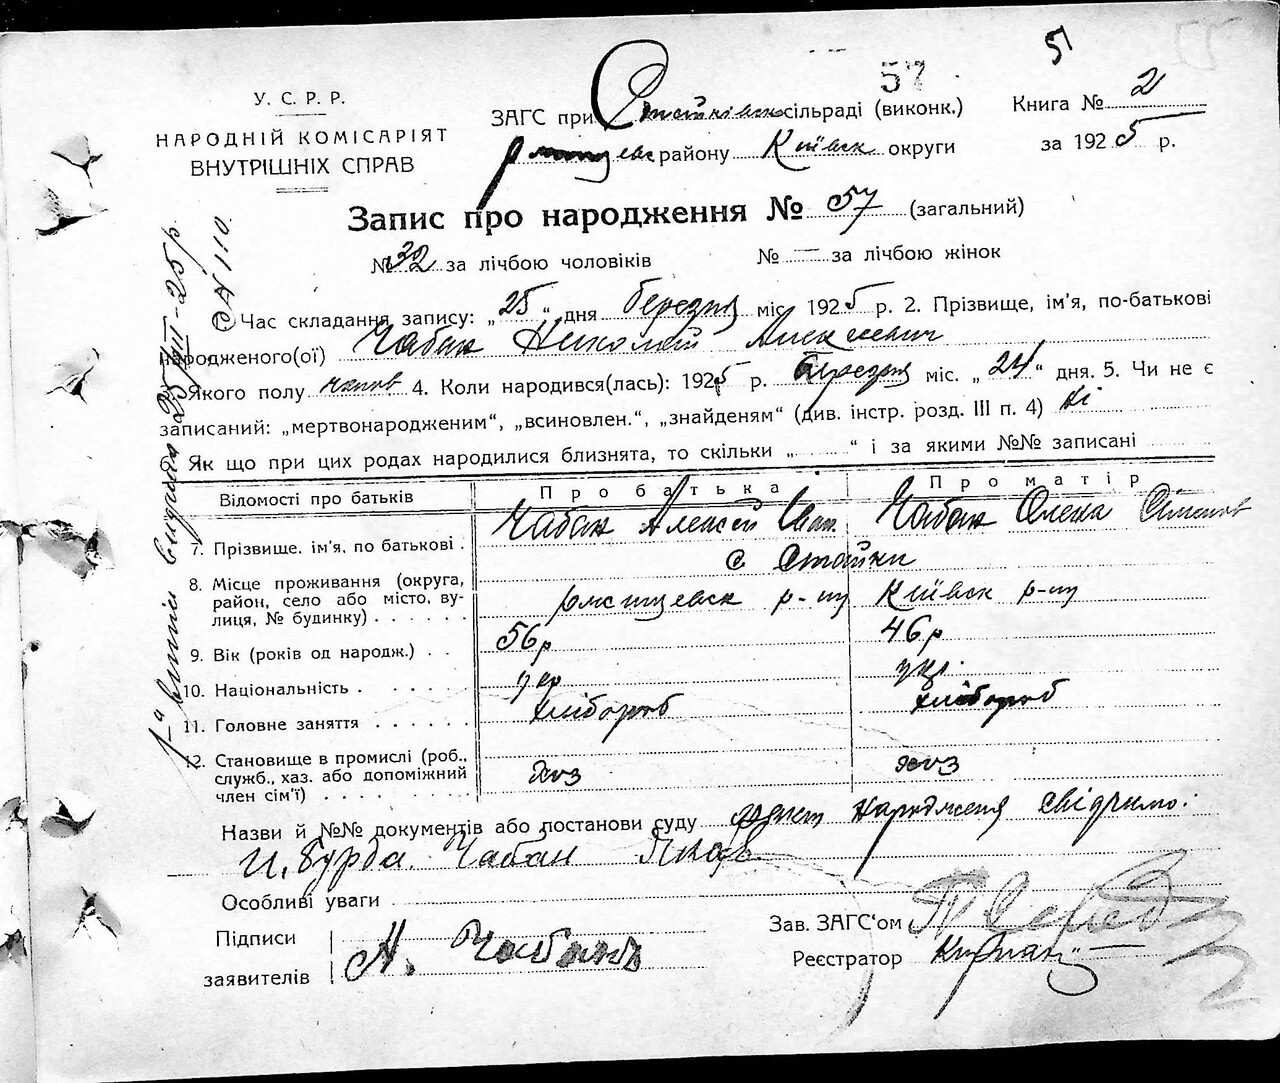 57
5
У. С. Р. Р.
НАРОДНІЙ КОМІСАРІЯТ
ВНУТРІШНІХ СПРАВ
ЗАГС при сільраді (виконк.)
району Київск округи
Книга № 2
за 1925 р.
Запис про народження № 57 (загальний)
№ 32 за лічбою чоловіків № — за лічбою жінок
1. Час складання запису: „25“ дня березня міс. 1925 р. 2. Прізвище, ім'я, по-батькові
народженого(ої) Чабан Николай Алексеевич
Якого полу 4. Коли народився(лась): 1925 р. березня міс. „24“ дня. 5. Чи не є
записаний: „мертвонародженим“, „всиновлен.“, „знайденям“ (див. інстр. розд. III п. 4) Ні
Як що при цих родах народилися близнята, то скільки „ “ і за якими №№ записані
Відомості про батьків Про батька Про матір
7. Прізвище. ім'я, по батькові. Чабан Алексей Іван. Чабан Олена
с Стайки
8. Місце проживання (округа, район, село або місто, вулиця, № будинку) р-ну Київск р-ну
9. Вік (років од народж.) 56р 46р
10. Національність укр укр.
11. Головне заняття хлібороб хлібороб
12. Становище в промислі (роб., служб., хаз. або допоміжний член сім'ї) хоз хоз
Назви й №№ документів або постанови суду факт народженя свідчимо:
И. Бурба. Чабан Яков
Особливі уваги
Підписи
заявителів А. Чабанъ
Зав. ЗАГС'ом
Реєстратор
1-а витяг видано 25/III-25 р.
№ 110.